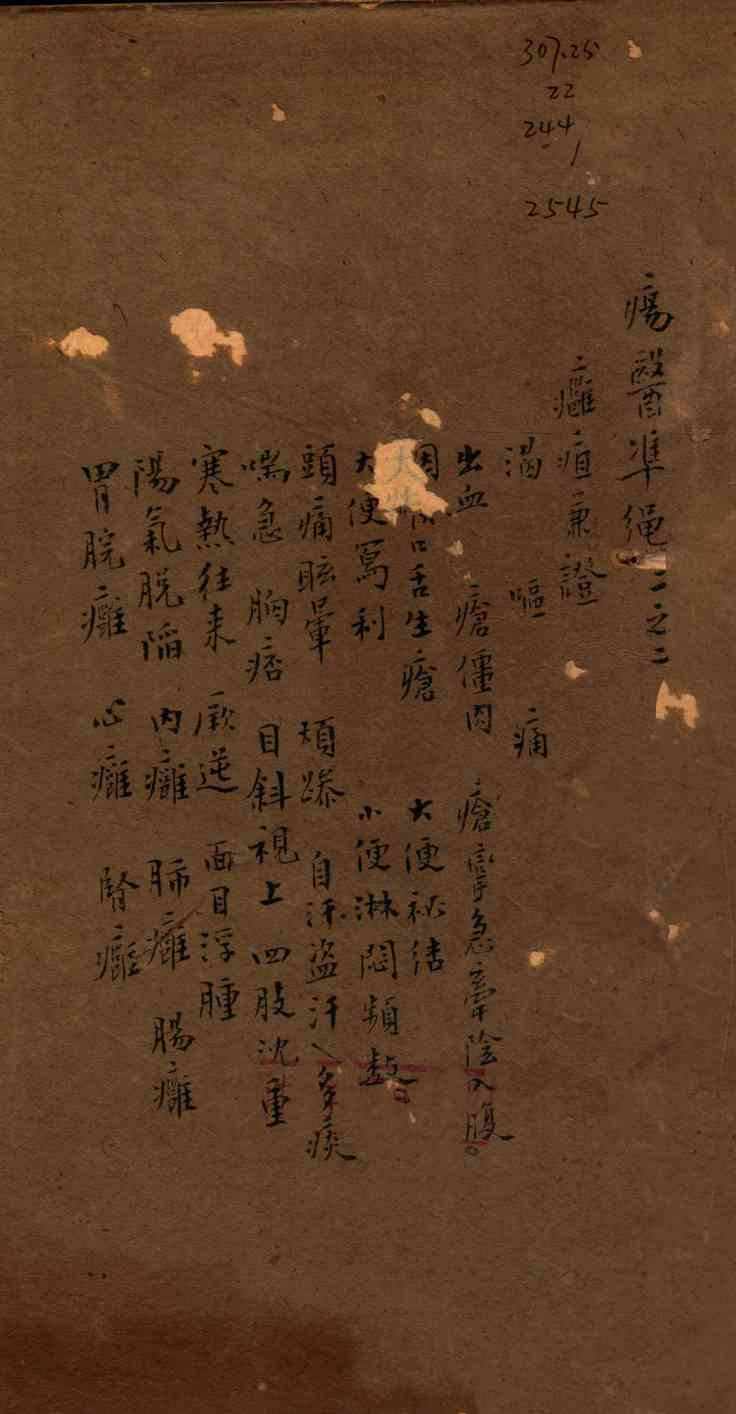 307.25
22
244
1
2545
瘍醫準繩二之二
癰疽兼證
渴 嘔 痛
出血 瘡僵肉 瘡攣急牽陰入腹
口舌生瘡 大便祕結
大便瀉利 小便淋悶頻數
頭痛眩暈 煩躁 自汗盜汗 多痰
喘急 胸痞 目斜視上 四肢沈重
寒熱往来 厥逆 面目浮腫
陽氣脱陷 內癰 肺癰 腸癰
胃脘癰 心癰 腎癰